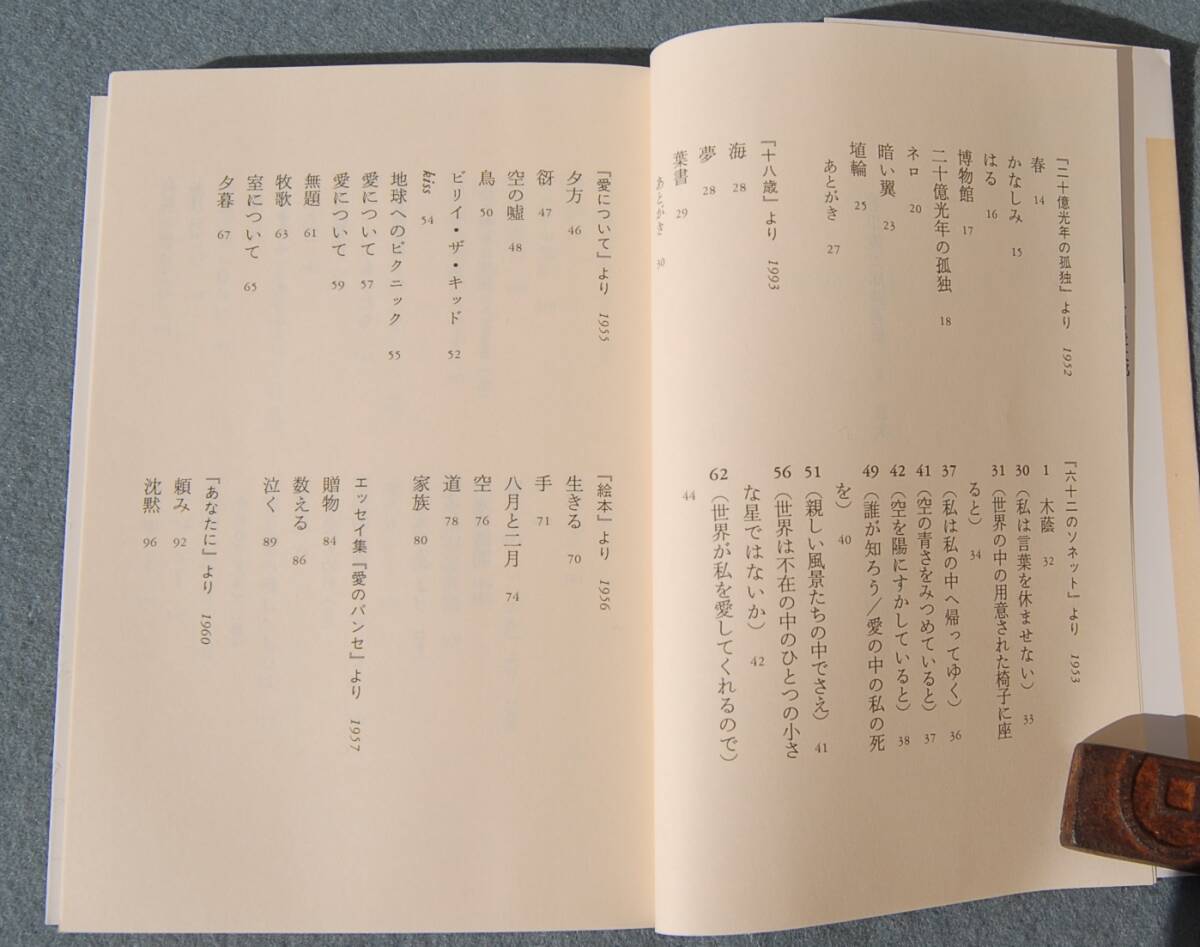 『二十億光年の孤独』より 1952
春 14
かなしみ 15
はる 16
博物館 17
二十億光年の孤独 18
ネロ 20
暗い翼 23
埴輪 25
あとがき 27
『十八歳』より 1993
海 28
夢 28
葉書 29
あとがき 30
『六十二のソネット』より 1953
1 木蔭 32
30（私は言葉を休ませない） 33
31（世界の中の用意された椅子に座
ると） 34
37（私は私の中へ帰ってゆく） 36
41（空の青さをみつめていると） 37
42（空を陽にすかしていると） 38
49（誰が知ろう／愛の中の私の死
を） 40
51（親しい風景たちの中でさえ） 41
56（世界は不在の中のひとつの小さ
な星ではないか） 42
62（世界が私を愛してくれるので）
44
『愛について』より 1955
夕方 46
谺 47
空の嘘 48
鳥 50
ビリイ・ザ・キッド 52
kiss 54
地球へのピクニック 55
愛について 57
愛について 59
無題 61
牧歌 63
室について 65
夕暮 67
『絵本』より 1956
生きる 70
手 71
八月と二月 74
空 76
道 78
家族 80
エッセイ集『愛のパンセ』より 1957
贈物 84
数える 86
泣く 89
『あなたに』より 1960
頼み 92
沈黙 96